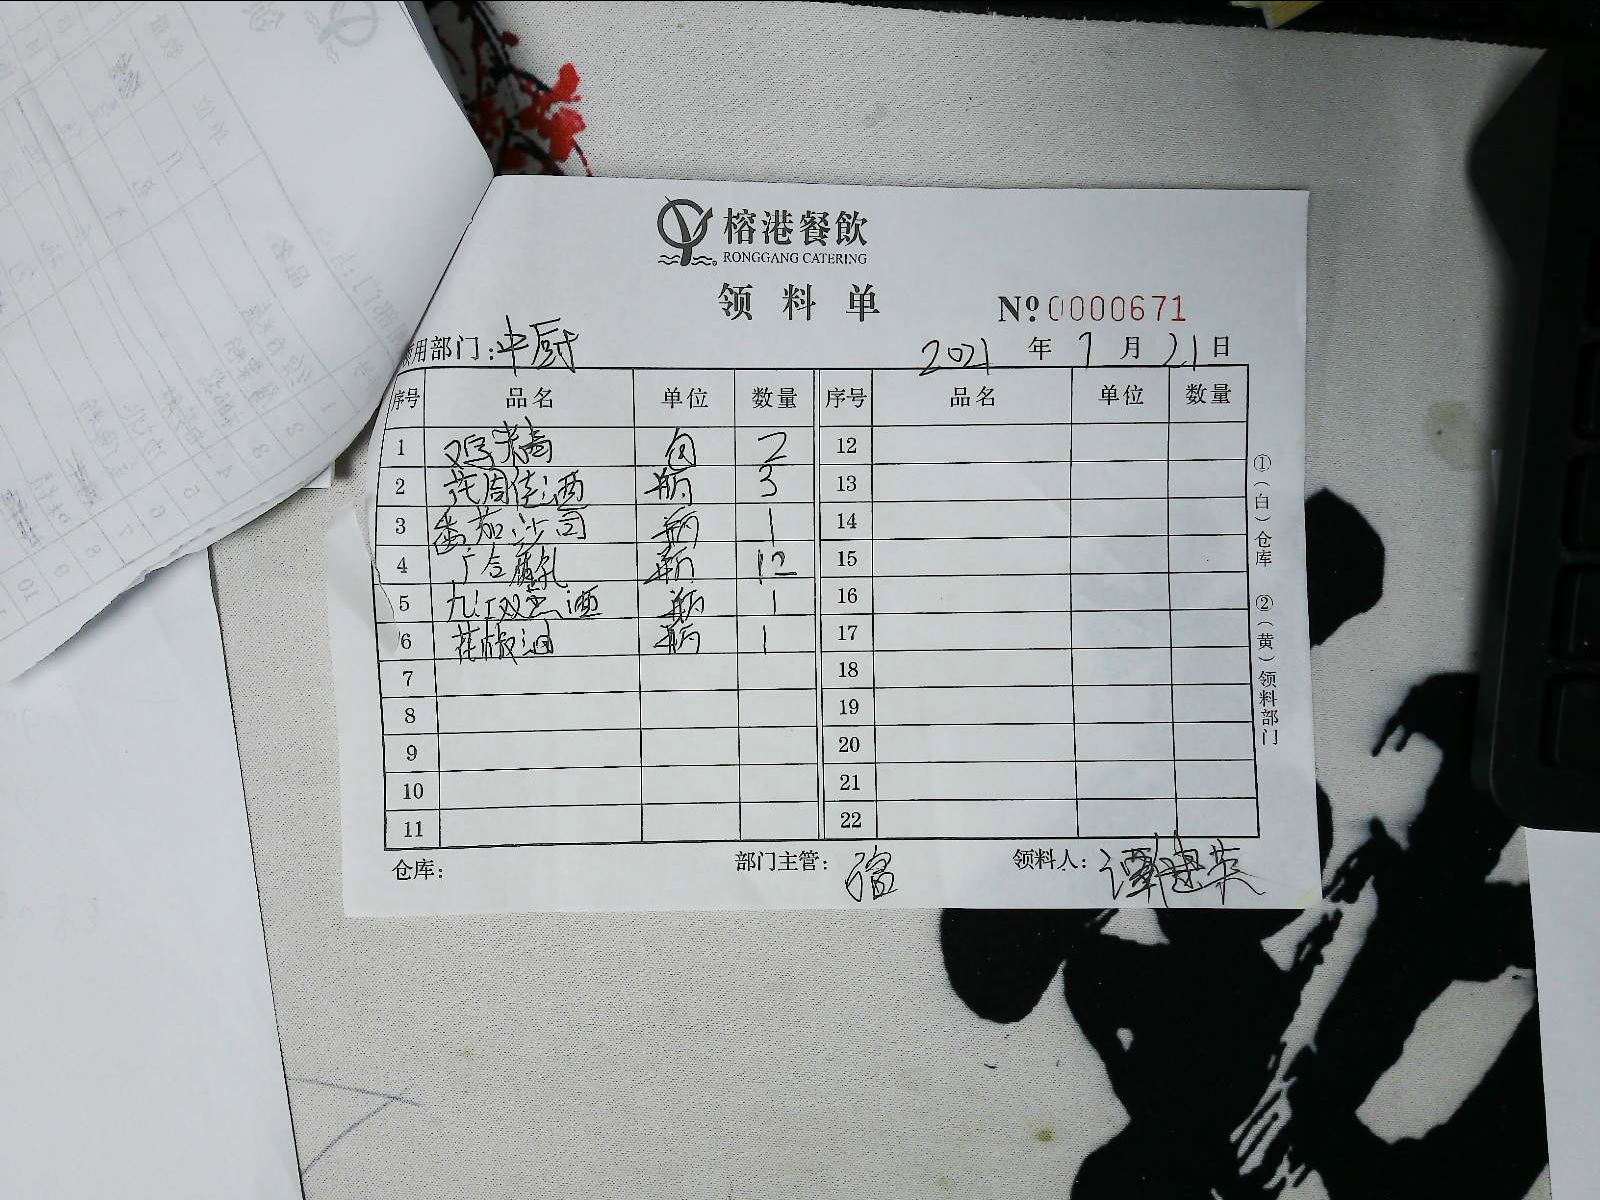 榕港餐飲
RONGGANG CATERING
领料单
№0000671
用部门:中厨 2021年7月21日
序号 品名 单位 数量 序号 品名 单位 数量
1 鸡精 包 2 12
2 瓶 3 13
3 番茄沙司 瓶 1 14
4 广合腐乳 瓶 12 15
5 九江双蒸酒 瓶 1 16
6 花椒油 瓶 1 17
7 18
8 19
9 20
10 21
11 22
①(白)仓库 ②(黄)领料部门
仓库: 部门主管: 领料人:谭建荣